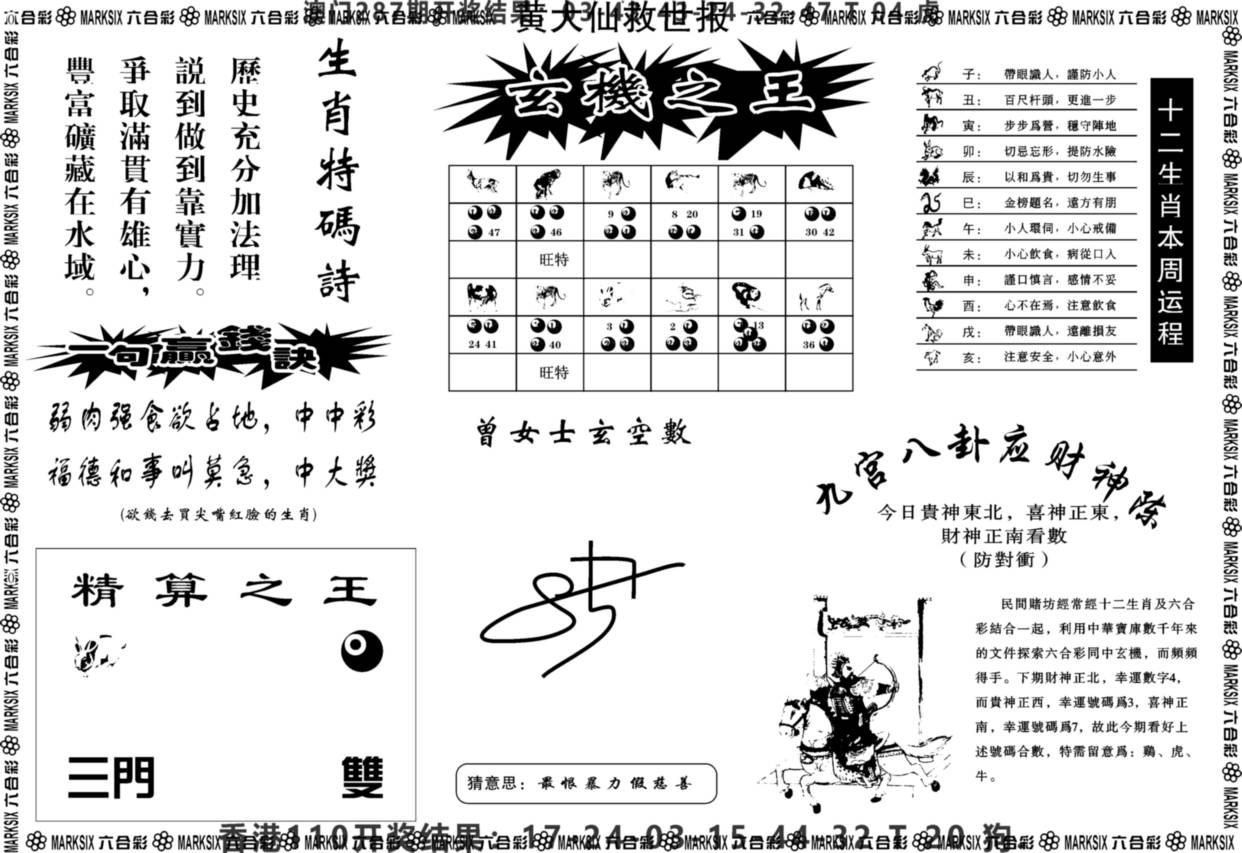 黄大仙救世报
澳门287期开奖结果
MARKSIX 六合彩
生肖特碼詩
歷史充分加法理
説到做到靠實力。
爭取滿貫有雄心，
豐富礦藏在水域。
一句贏錢訣
弱肉强食欲占地，中中彩
福德和事叫莫急，中大獎
(欲錢去買尖嘴紅臉的生肖)
精算之王
三門
雙
玄機之王
47
46
9
8 20
19
31
30 42
旺特
24 41
40
3
2
13
36
旺特
曾女士玄空數
猜意思：最恨暴力假慈善
十二生肖本周运程
子：帶眼識人，謹防小人
丑：百尺杆頭，更進一步
寅：步步爲營，穩守陣地
卯：切忌忘形，提防水險
辰：以和爲貴，切勿生事
巳：金榜題名，遠方有朋
午：小人環伺，小心戒備
未：小心飲食，病從口入
申：謹口慎言，感情不妥
酉：心不在焉，注意飲食
戌：帶眼識人，遠離損友
亥：注意安全，小心意外
九宫八卦应财神
今日貴神東北，喜神正東，
財神正南看數
（防對衝）
民間賭坊經常經十二生肖及六合
彩結合一起，利用中華寶庫數千年來
的文件探索六合彩同中玄機，而頻頻
得手。下期財神正北，幸運數字4，
而貴神正西，幸運號碼爲3，喜神正
南，幸運號碼爲7，故此今期看好上
述號碼合數，特需留意爲：鷄、虎、
牛。
香港110开奖结果：17-24-03-15-44-32 T 20 狗